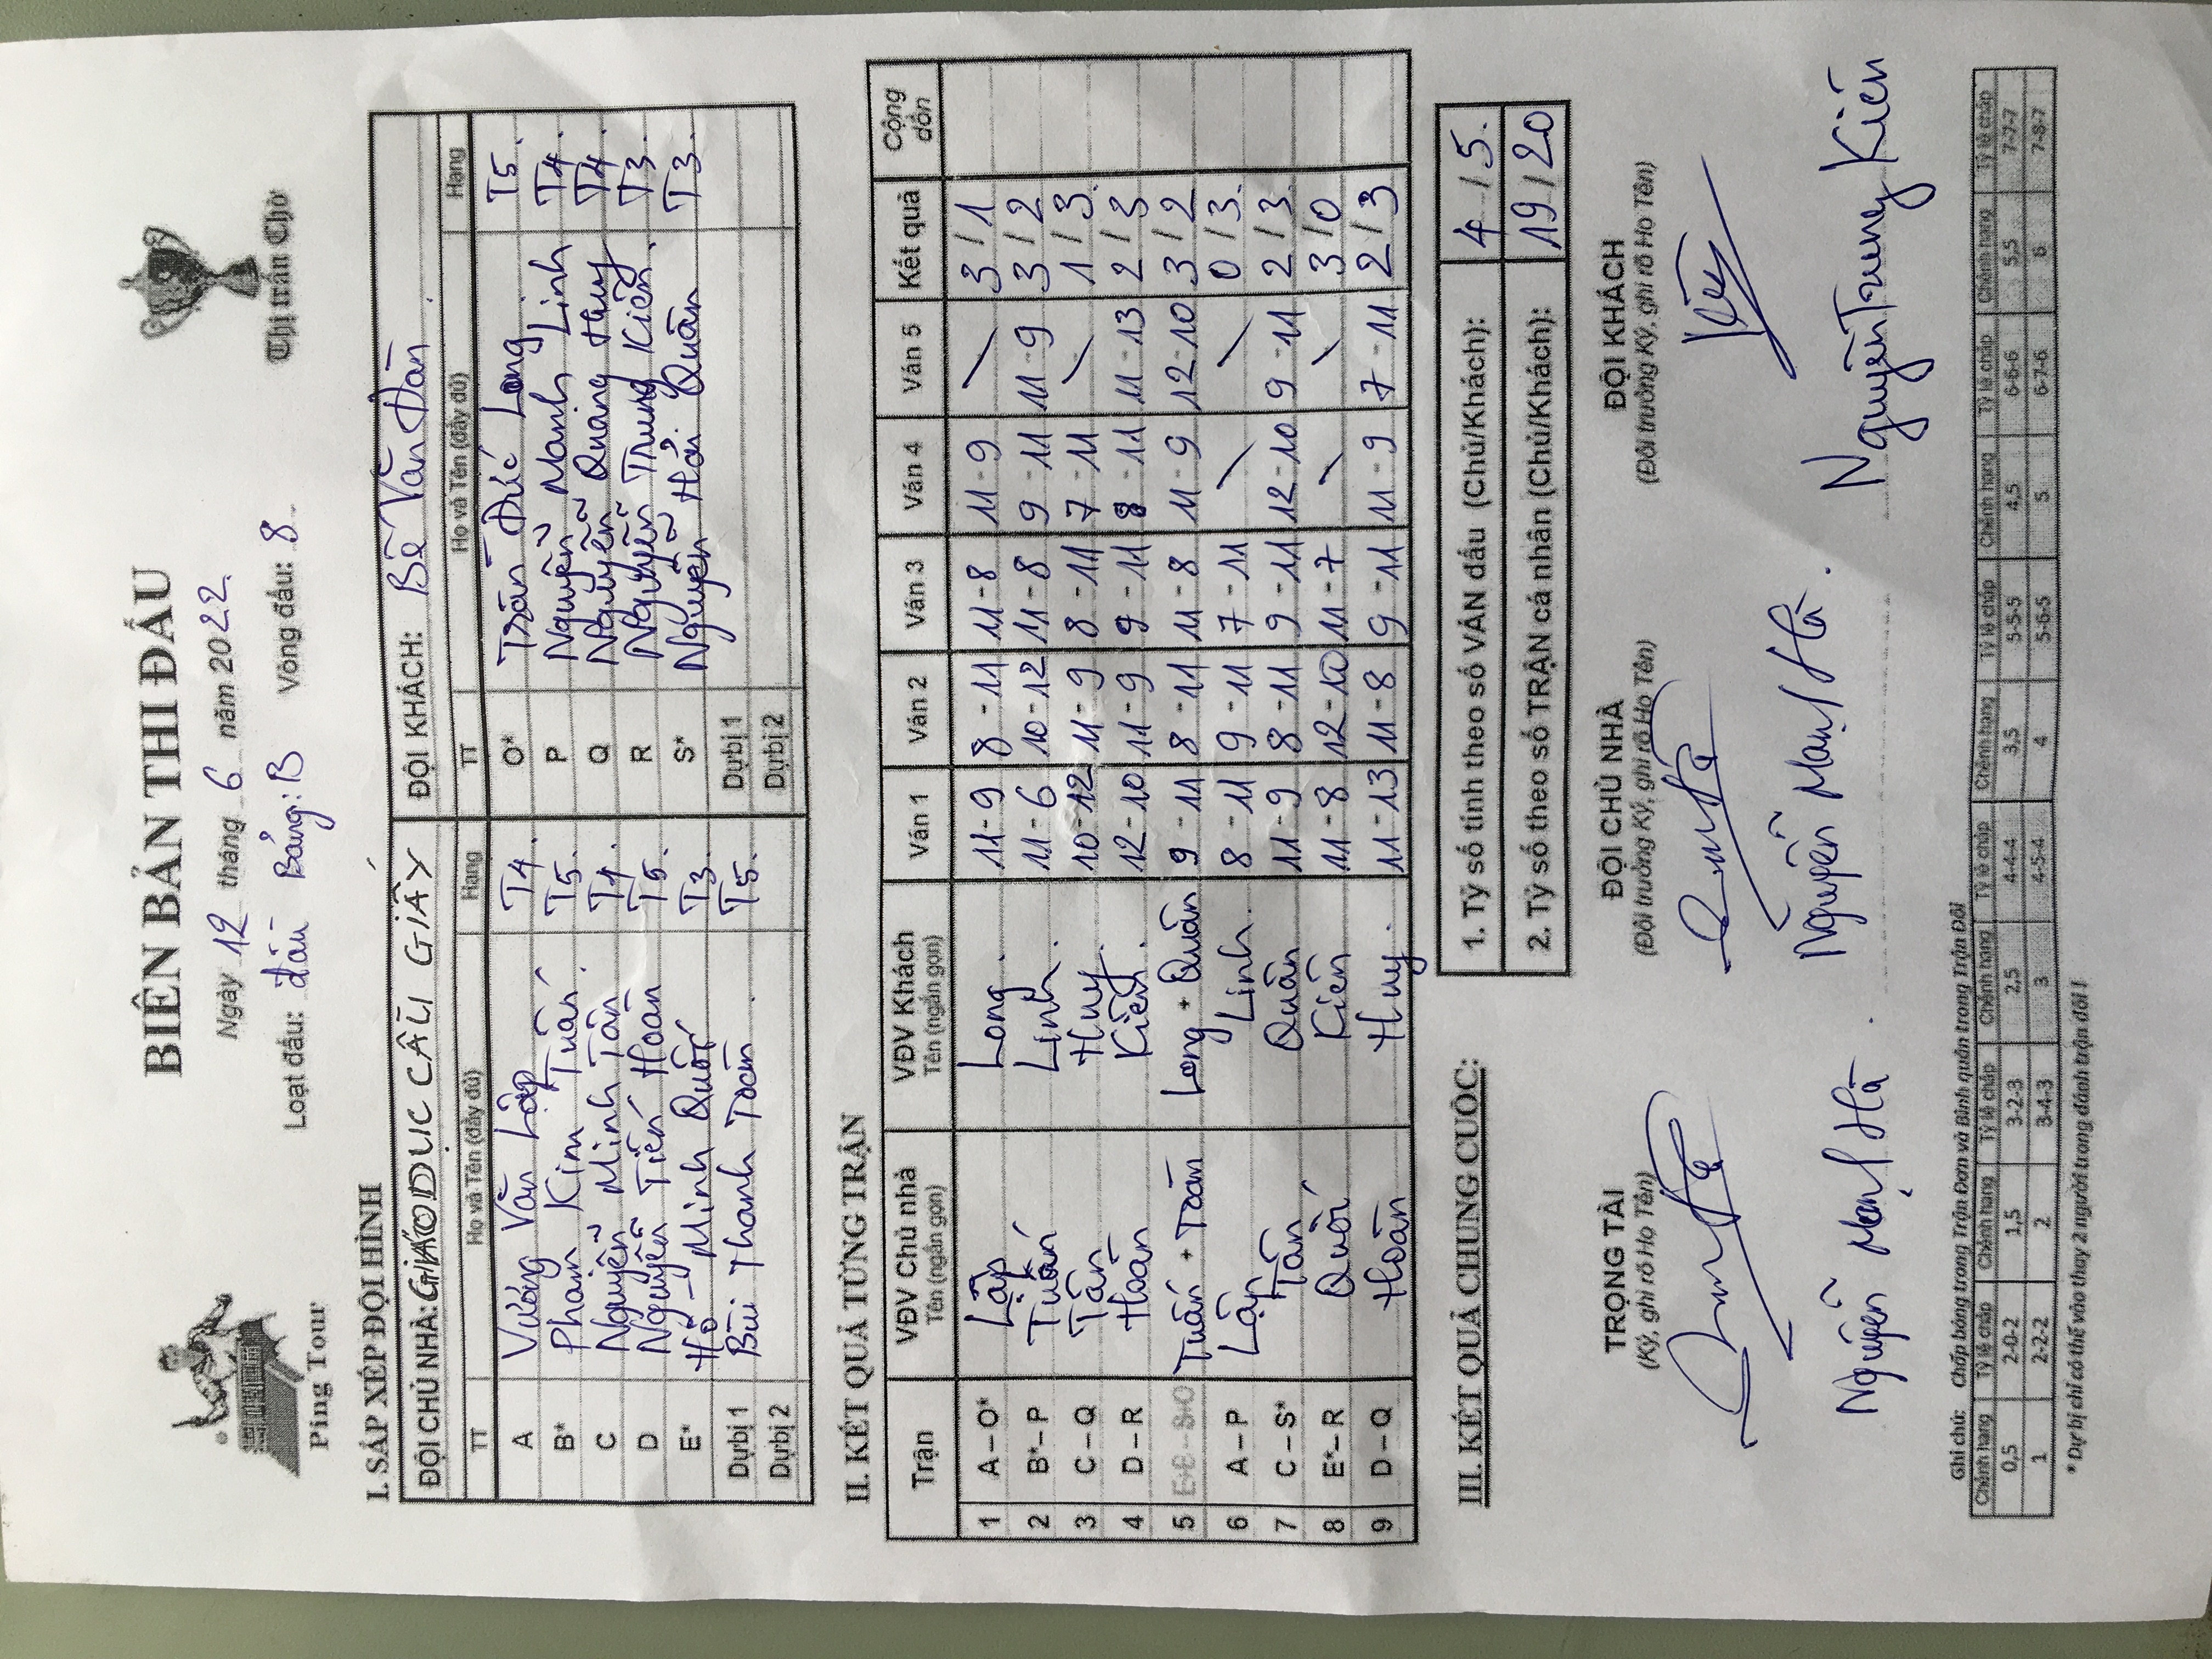 Ping Tour
BIÊN BẢN THI ĐẤU
Ngày 12 tháng 6 năm 2022
Thị trấn Chờ
Loạt đấu: đấu Bảng: B Vòng đấu: 8
I. SẮP XẾP ĐỘI HÌNH
ĐỘI CHỦ NHÀ: GIÁO DỤC CẦU GIẤY ĐỘI KHÁCH: Bế Văn Đàn
TT Họ và Tên (đầy đủ) Hạng TT Họ và Tên (đầy đủ) Hạng
A Vương Văn Lập T4. O* Trần Đức Long T5.
B* Phạm Kim Tuấn T5. P Nguyễn Mạnh Linh T4.
C Nguyễn Minh Tân T4 Q Nguyễn Quang Huy T4.
D Nguyễn Tiến Hoàn T5. R Nguyễn Trung Kiên T3
E* Hồ Minh Quốc T3 S* Nguyễn Hải Quân T3.
Dự bị 1 Bùi Thanh Toàn T5. Dự bị 1
Dự bị 2 Dự bị 2
II. KẾT QUẢ TỪNG TRẬN
Trận VĐV Chủ nhà Tên (ngắn gọn) VĐV Khách Tên (ngắn gọn) Ván 1 Ván 2 Ván 3 Ván 4 Ván 5 Kết quả Cộng dồn
1 A – O* Lập Long 11-9 8-11 11-8 11-9 3/1
2 B* – P Tuấn Linh 11-6 10-12 11-8 9-11 11-9 3/2
3 C – Q Tân Huy 10-12 11-9 8-11 7-11 1/3
4 D – R Hoàn Kiên 12-10 11-9 9-11 8-11 11-13 2/3
5 Tuấn + Toàn Long + Quân 9-11 8-11 11-8 11-9 12-10 3/2
6 A – P Lập Linh 8-11 9-11 7-11 0/3
7 C – S* Tân Quân 11-9 8-11 9-11 12-10 9-11 2/3
8 E* – R Quốc Kiên 11-8 12-10 11-7 3/0
9 D – Q Hoàn Huy 11-13 11-8 9-11 11-9 7-11 2/3
III. KẾT QUẢ CHUNG CUỘC:
1. Tỷ số tính theo số VÁN đấu (Chủ/Khách): 4/5.
2. Tỷ số theo số TRẬN cá nhân (Chủ/Khách): 19/20
TRỌNG TÀI ĐỘI CHỦ NHÀ ĐỘI KHÁCH
(Ký, ghi rõ Họ Tên) (Đội trưởng Ký, ghi rõ Họ Tên) (Đội trưởng Ký, ghi rõ Họ Tên)
Nguyễn Mạnh Hà. Nguyễn Mạnh Hà. Nguyễn Trung Kiên
Ghi chú: Chấp bóng trong Trận Đơn và Bình quân trong Trận Đôi
Chênh hạng Tỷ lệ chấp Chênh hạng Tỷ lệ chấp Chênh hạng Tỷ lệ chấp Chênh hạng Tỷ lệ chấp Chênh hạng Tỷ lệ chấp Chênh hạng Tỷ lệ chấp Chênh hạng Tỷ lệ chấp
0,5 2-0-2 1,5 3-2-3 2,5 4-4-4 3,5 5-5-5 4,5 6-6-6 5,5 7-7-7
1 2-2-2 2 3-4-3 3 4-5-4 4 5-6-5 5 6-7-6 6 7-8-7
* Dự bị chỉ có thể vào thay 2 người trong đánh trận đôi !